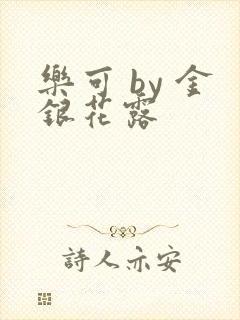 樂可 by 金
銀花露
詩人亦安